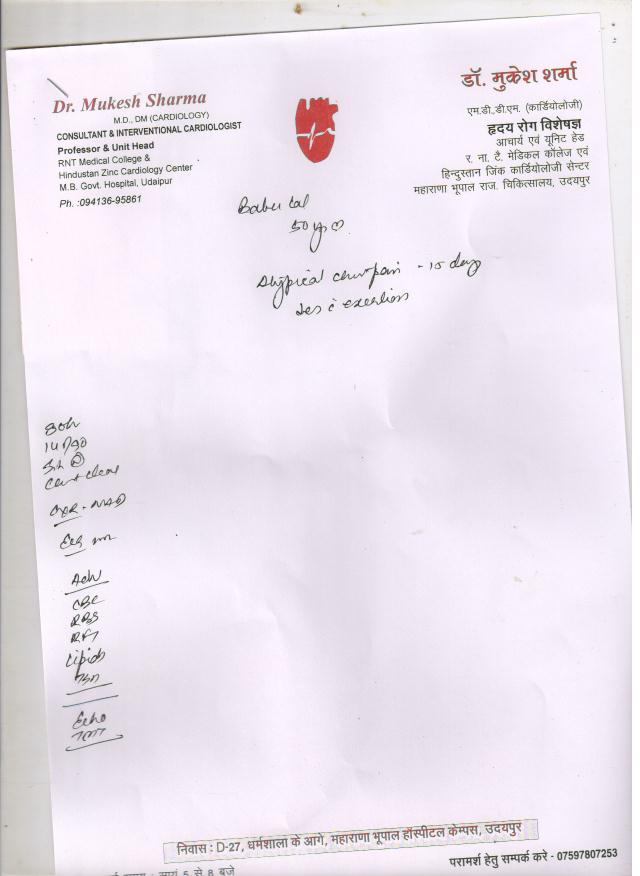 Dr. Mukesh Sharma
M.D., DM (CARDIOLOGY)
CONSULTANT & INTERVENTIONAL CARDIOLOGIST
Professor & Unit Head
RNT Medical College &
Hindustan Zinc Cardiology Center
M.B. Govt. Hospital, Udaipur
Ph. :094136-95861
डॉ. मुकेश शर्मा
एम.डी.,डी.एम. (कार्डियोलोजी)
हृदय रोग विशेषज्ञ
आचार्य एवं यूनिट हेड
र. ना. टै. मेडिकल कॉलेज एवं
हिन्दुस्तान जिंक कार्डियोलोजी सेन्टर
महाराणा भूपाल राज. चिकित्सालय, उदयपुर
Babu Lal
50 yr
Atypical chest pain - 15 days
exertion
80/
140/90
Chest clear
CXR - NAD
ECG
Adv
CBC
RBS
RFT
Lipids
TSH
Echo
TMT
निवास : D-27, धर्मशाला के आगे, महाराणा भूपाल हॉस्पीटल केम्पस, उदयपुर
परामर्श हेतु सम्पर्क करे - 07597807253
सायं 5 से 8 बजे